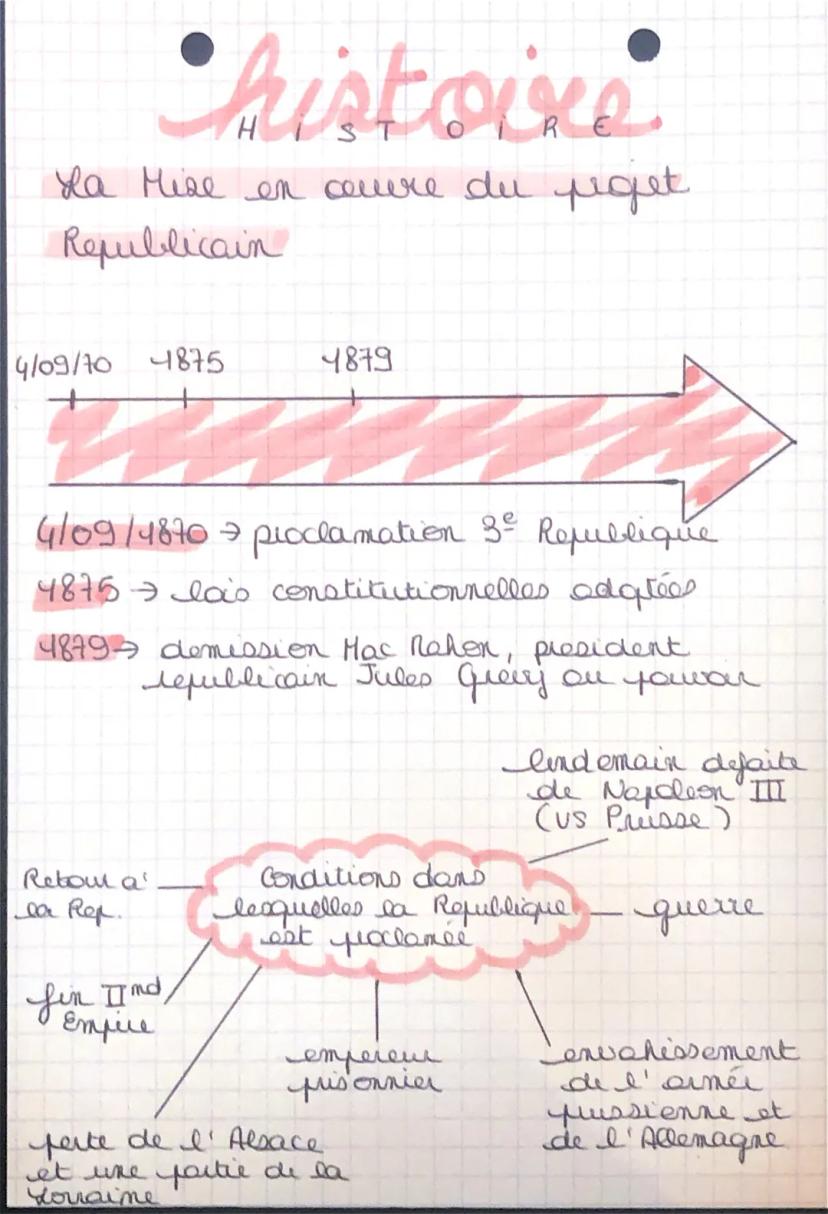 histoire
HiSTOiRE
La Mise en œuvre du projet
Republicain
4/09/70 1875 1879
4/09/1870 → proclamation 3e Republique
1875 → lois constitutionnelles adoptées
1879 → demission Mac Mahon, president
republicain Jules Grevy au pouvoir
lendemain defaite
de Napoleon III
(VS Prusse)
Retour a'
la Rep.
Conditions dans
lesquelles la Republique
est proclamée
guerre
fin IInd
Empire
empereur
prisonnier
envahissement
de l'armée
prussienne et
de l'Allemagne
perte de l'Alsace
et une partie de la
Lorraine